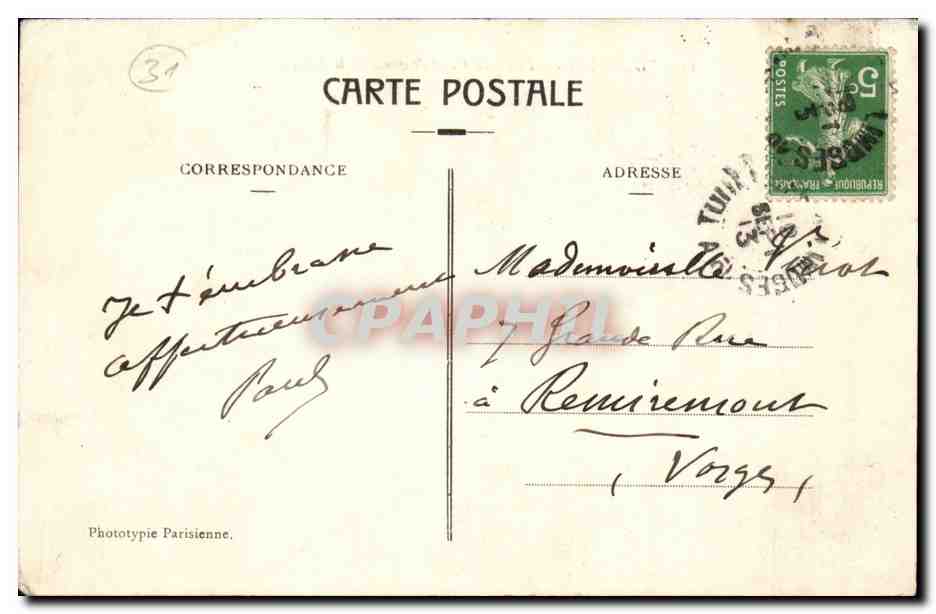 31
CARTE POSTALE
CORRESPONDANCE
ADRESSE
5c
POSTES
REPUBLIQUE FRANÇAISE
Je t'embrasse
affectueusement
Paul
Mademoiselle
7 Grande Rue
à Remiremont
(Vosges)
Phototypie Parisienne.
CPAPHIL